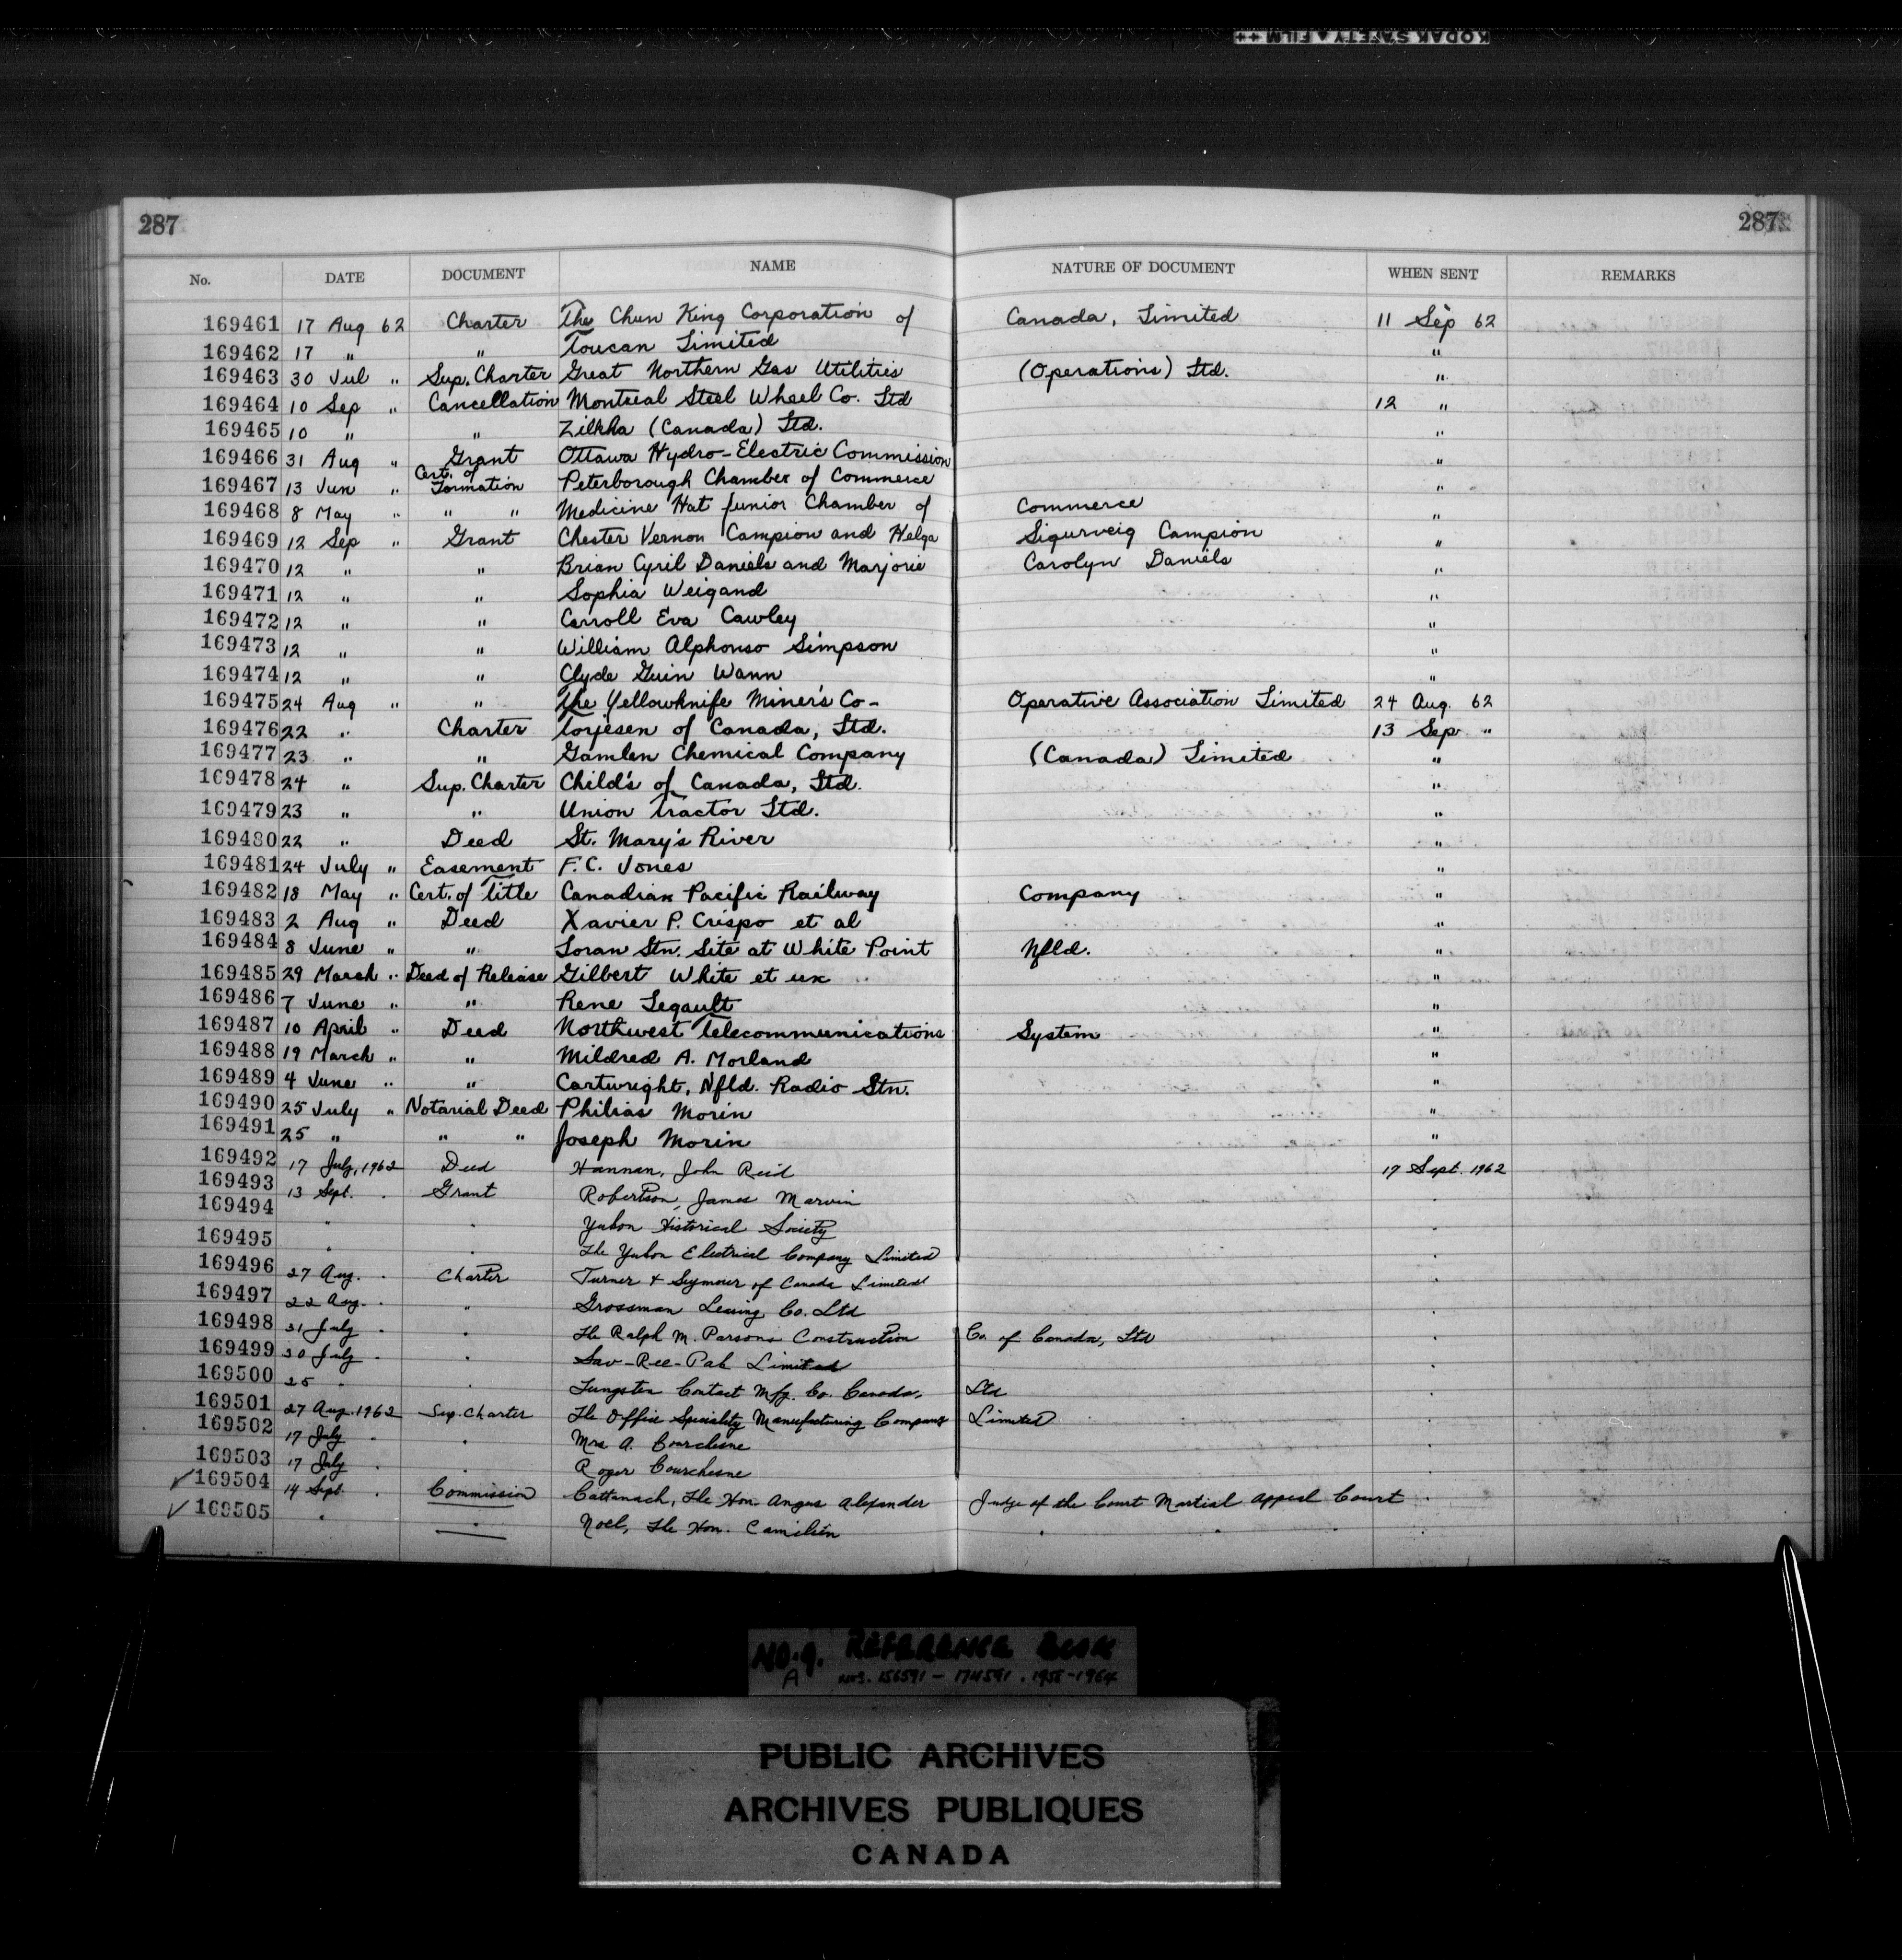 KODAK SAFETY FILM ++
287 287
No. DATE DOCUMENT NAME NATURE OF DOCUMENT WHEN SENT REMARKS
169461 17 Aug 62 Charter The Chun King Corporation of Canada, Limited 11 Sep 62
169462 17 " " Toucan Limited "
169463 30 Jul " Sup. Charter Great Northern Gas Utilities (Operations) Ltd. "
169464 10 Sep " Cancellation Montreal Steel Wheel Co. Ltd 12 "
169465 10 " " Zilkha (Canada) Ltd. "
169466 31 Aug " Grant Ottawa Hydro-Electric Commission "
169467 13 Jun " Cert. of Formation Peterborough Chamber of Commerce "
169468 8 May " " " Medicine Hat Junior Chamber of Commerce "
169469 12 Sep " Grant Chester Vernon Campion and Helga Sigurveig Campion "
169470 12 " " Brian Cyril Daniels and Marjorie Carolyn Daniels "
169471 12 " " Sophia Weigand "
169472 12 " " Carroll Eva Cawley "
169473 12 " " William Alphonso Simpson "
169474 12 " " Clyde Guin Wann "
169475 24 Aug " " The Yellowknife Miner's Co- Operative Association Limited 24 Aug. 62
169476 22 " Charter Torjesen of Canada, Ltd. 13 Sep "
169477 23 " " Gamlen Chemical Company (Canada) Limited "
169478 24 " Sup. Charter Child's of Canada, Ltd. "
169479 23 " " Union Tractor Ltd. "
169480 22 " Deed St. Mary's River "
169481 24 July " Easement F.C. Jones "
169482 18 May " Cert. of Title Canadian Pacific Railway Company "
169483 2 Aug " Deed Xavier P. Crispo et al "
169484 8 June " " Loran Stn. Site at White Point Nfld. "
169485 29 March " Deed of Release Gilbert White et ux "
169486 7 June " " Rene Legault "
169487 10 April " Deed Northwest Telecommunications System "
169488 19 March " " Mildred A. Morland "
169489 4 June " " Cartwright, Nfld. Radio Stn. "
169490 25 July " Notarial Deed Philias Morin "
169491 25 " " " Joseph Morin "
169492 17 July, 1962 Deed Hannan, John Reid 17 Sept. 1962
169493 13 Sept. " Grant Robertson, James Marvin "
169494 " " Yukon Historical Society "
169495 " " The Yukon Electrical Company Limited "
169496 27 Aug. " Charter Turner & Seymour of Canada Limited "
169497 22 Aug. " " Grossman Leasing Co. Ltd "
169498 31 July " " The Ralph M. Parsons Construction Co. of Canada, Ltd "
169499 30 July " " Sav-Ree-Pak Limited "
169500 25 " " Tungsten Contact Mfg. Co. Canada, Ltd "
169501 27 Aug. 1962 Sup. Charter The Office Speciality Manufacturing Company Limited "
169502 17 July " " Mrs A. Courchesne "
169503 17 July " " Roger Courchesne "
✓ 169504 14 Sept. " Commission Cattanach, The Hon. Angus Alexander Judge of the Court Martial Appeal Court "
✓ 169505 " " Noel, The Hon. Camilien " " "
NO. 9. REFERENCE BOOK
A NOS. 156591 - 174591 . 1958-1964
PUBLIC ARCHIVES
ARCHIVES PUBLIQUES
CANADA